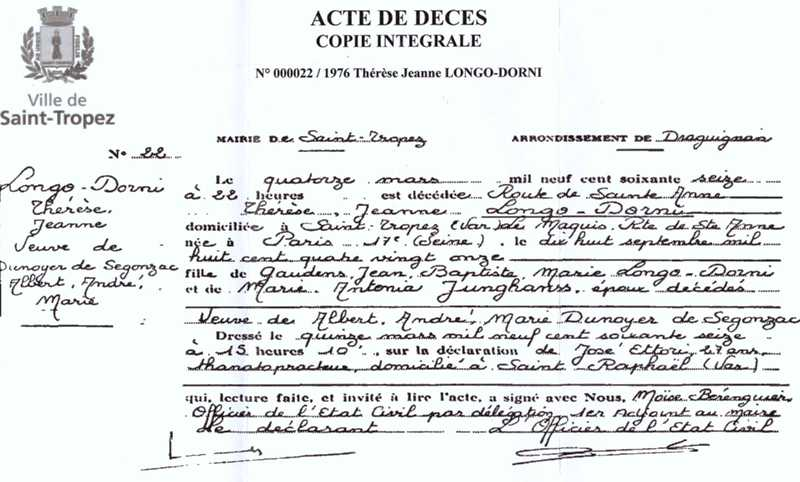 ACTE DE DECES
COPIE INTEGRALE
N° 000022 / 1976 Thérèse Jeanne LONGO-DORNI
Ville de
Saint-Tropez
MAIRIE De Saint-Tropez ARRONDISSEMENT DE Draguignan
N° 22
Longo-Dorni
Thérèse,
Jeanne
Veuve de
Dunoyer de Segonzac
Albert, André,
Marie
Le quatorze mars mil neuf cent soixante seize
à 22 heures est décédée Route de Sainte Anne
Thérèse, Jeanne Longo-Dorni
domiciliée à Saint-Tropez (Var) Le Maquis Rte de Ste Anne
née à Paris 17e (Seine), le dix huit septembre mil
huit cent quatre vingt onze
fille de Gaudens, Jean, Baptiste, Marie Longo-Dorni
et de Marie, Antonia Junghanss, époux décédés
Veuve de Albert, André, Marie Dunoyer de Segonzac
Dressé le quinze mars mil neuf cent soixante seize
à 15 heures 10, sur la déclaration de José Ettori, 27 ans,
thanatopracteur, domicilié à Saint-Raphaël (Var)
qui, lecture faite, et invité à lire l'acte, a signé avec Nous, Moïse Bérenguier
Officier de l'Etat Civil par délégation 1er Adjoint au maire
Le déclarant L'Officier de l'Etat Civil